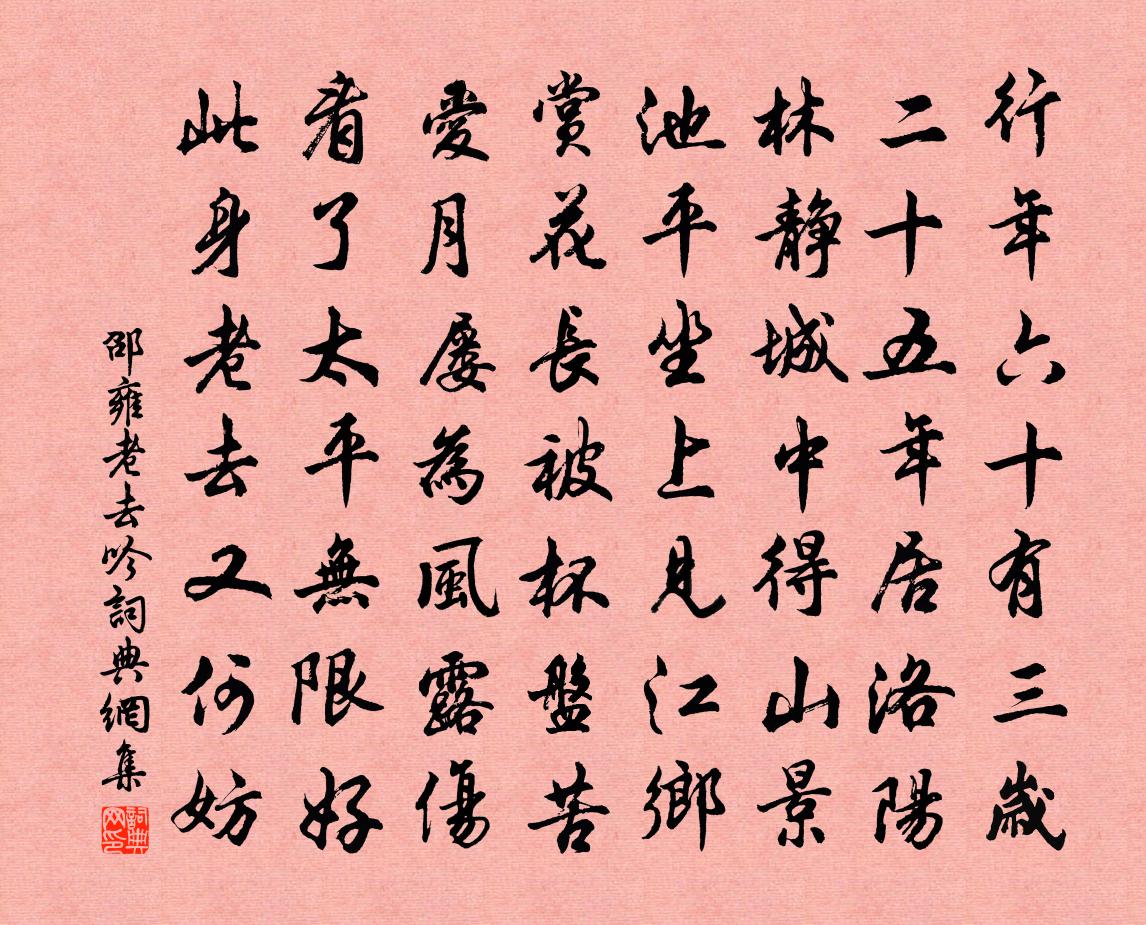 行年六十有三歲
二十五年居洛陽
林靜城中得山景
池平坐上見江鄉
賞花長被杯盤苦
愛月屢為風露傷
看了太平無限好
此身老去又何妨
邵雍老去吟詞典網集
詞典網印